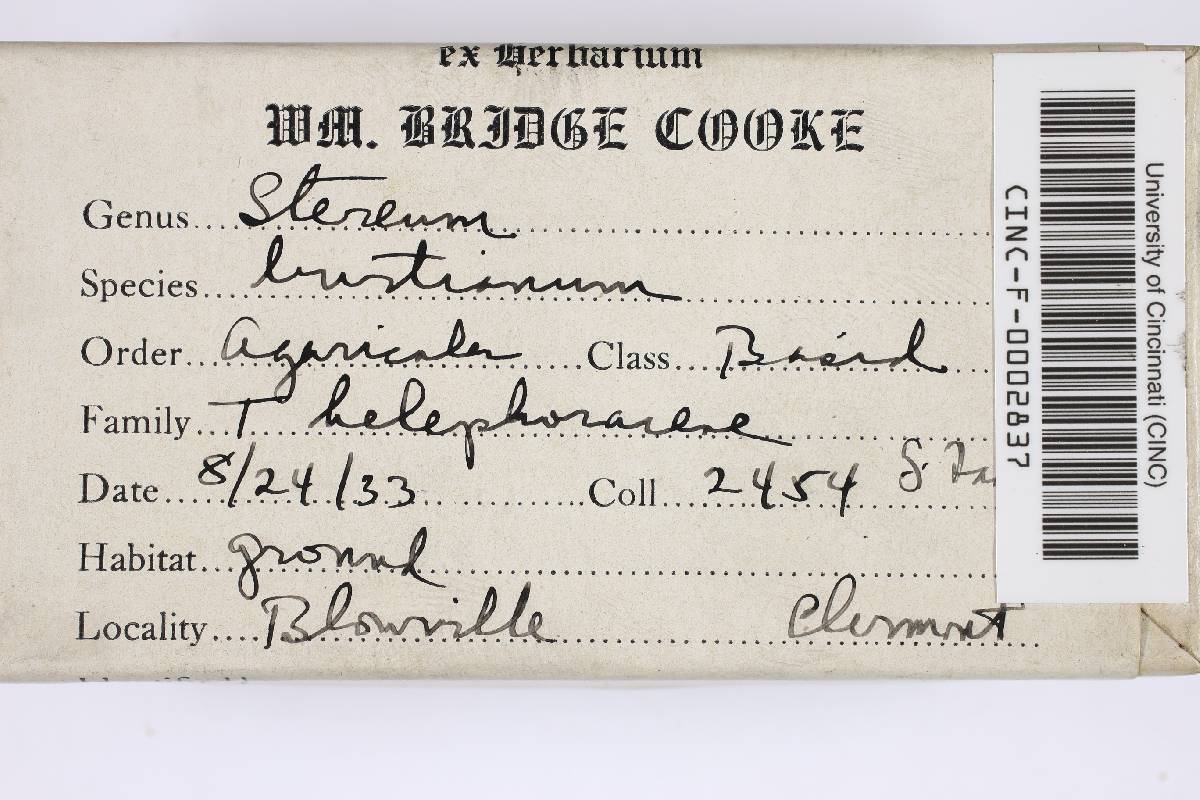 ex Herbarium
WM. BRIDGE COOKE
Genus Stereum
Species
Order Agaricales Class Basid
Family Thelephoraceae
Date 8/24/33 Coll 2454
Habitat ground
Locality Blowville Clermont
University of Cincinnati (CINC)
CINC-F-0002837